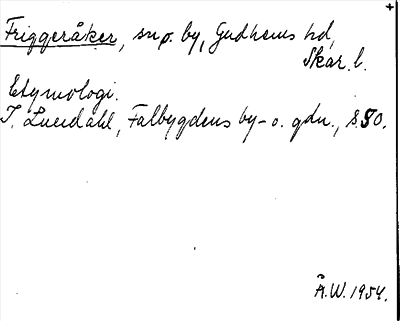 Friggeråker, snp. by, Gudhems hd,
Skar. l.
Etymologi.
I. Lundahl, Falbygdens by- o. gdn., s 50.
Å.W. 1954.